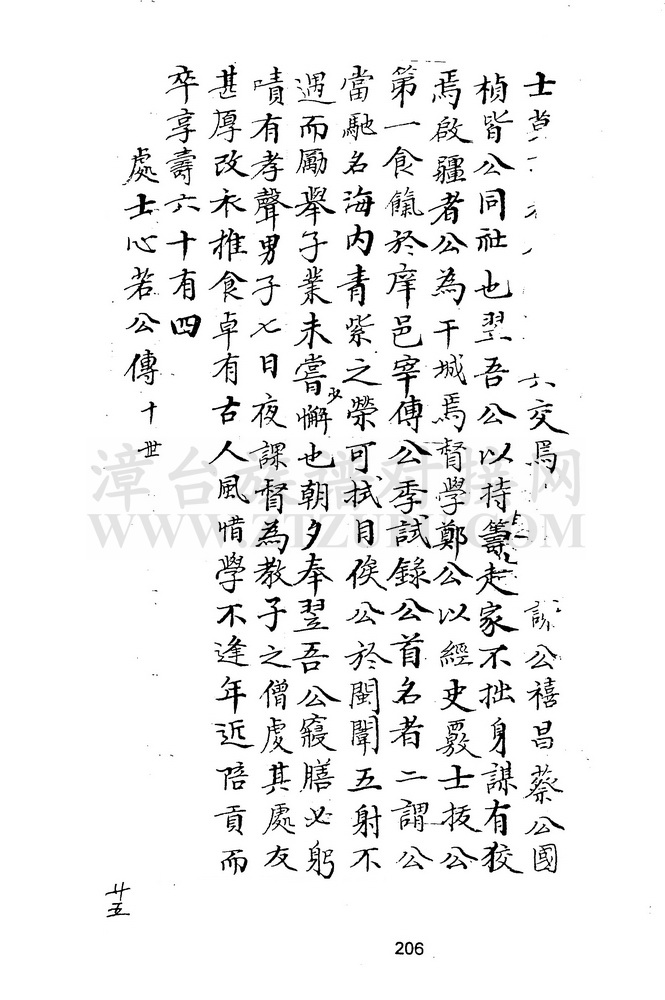 士 六交焉 公禧昌蔡公國
楨皆公同社也翌吾公以持籌走家不拙身謀有狡
焉啟疆者公為干城焉督學鄭公以經史覈士拔公
第一食餼於庠邑宰傳公季試錄公首名者二謂公
當馳名海內青紫之榮可拭目俟公於闈闈五射不
遇而勵舉子業未嘗少懈也朝夕奉翌吾公寢膳必躬
嘖有孝聲男子七日夜課督為教子之僧虔其處友
甚厚改衣推食卓有古人風惜學不逢年近陪貢而
卒享壽六十有四
處士心若公傳 十世
廿五
206
漳台族譜对接网
WWW.ZTZUPU.COM